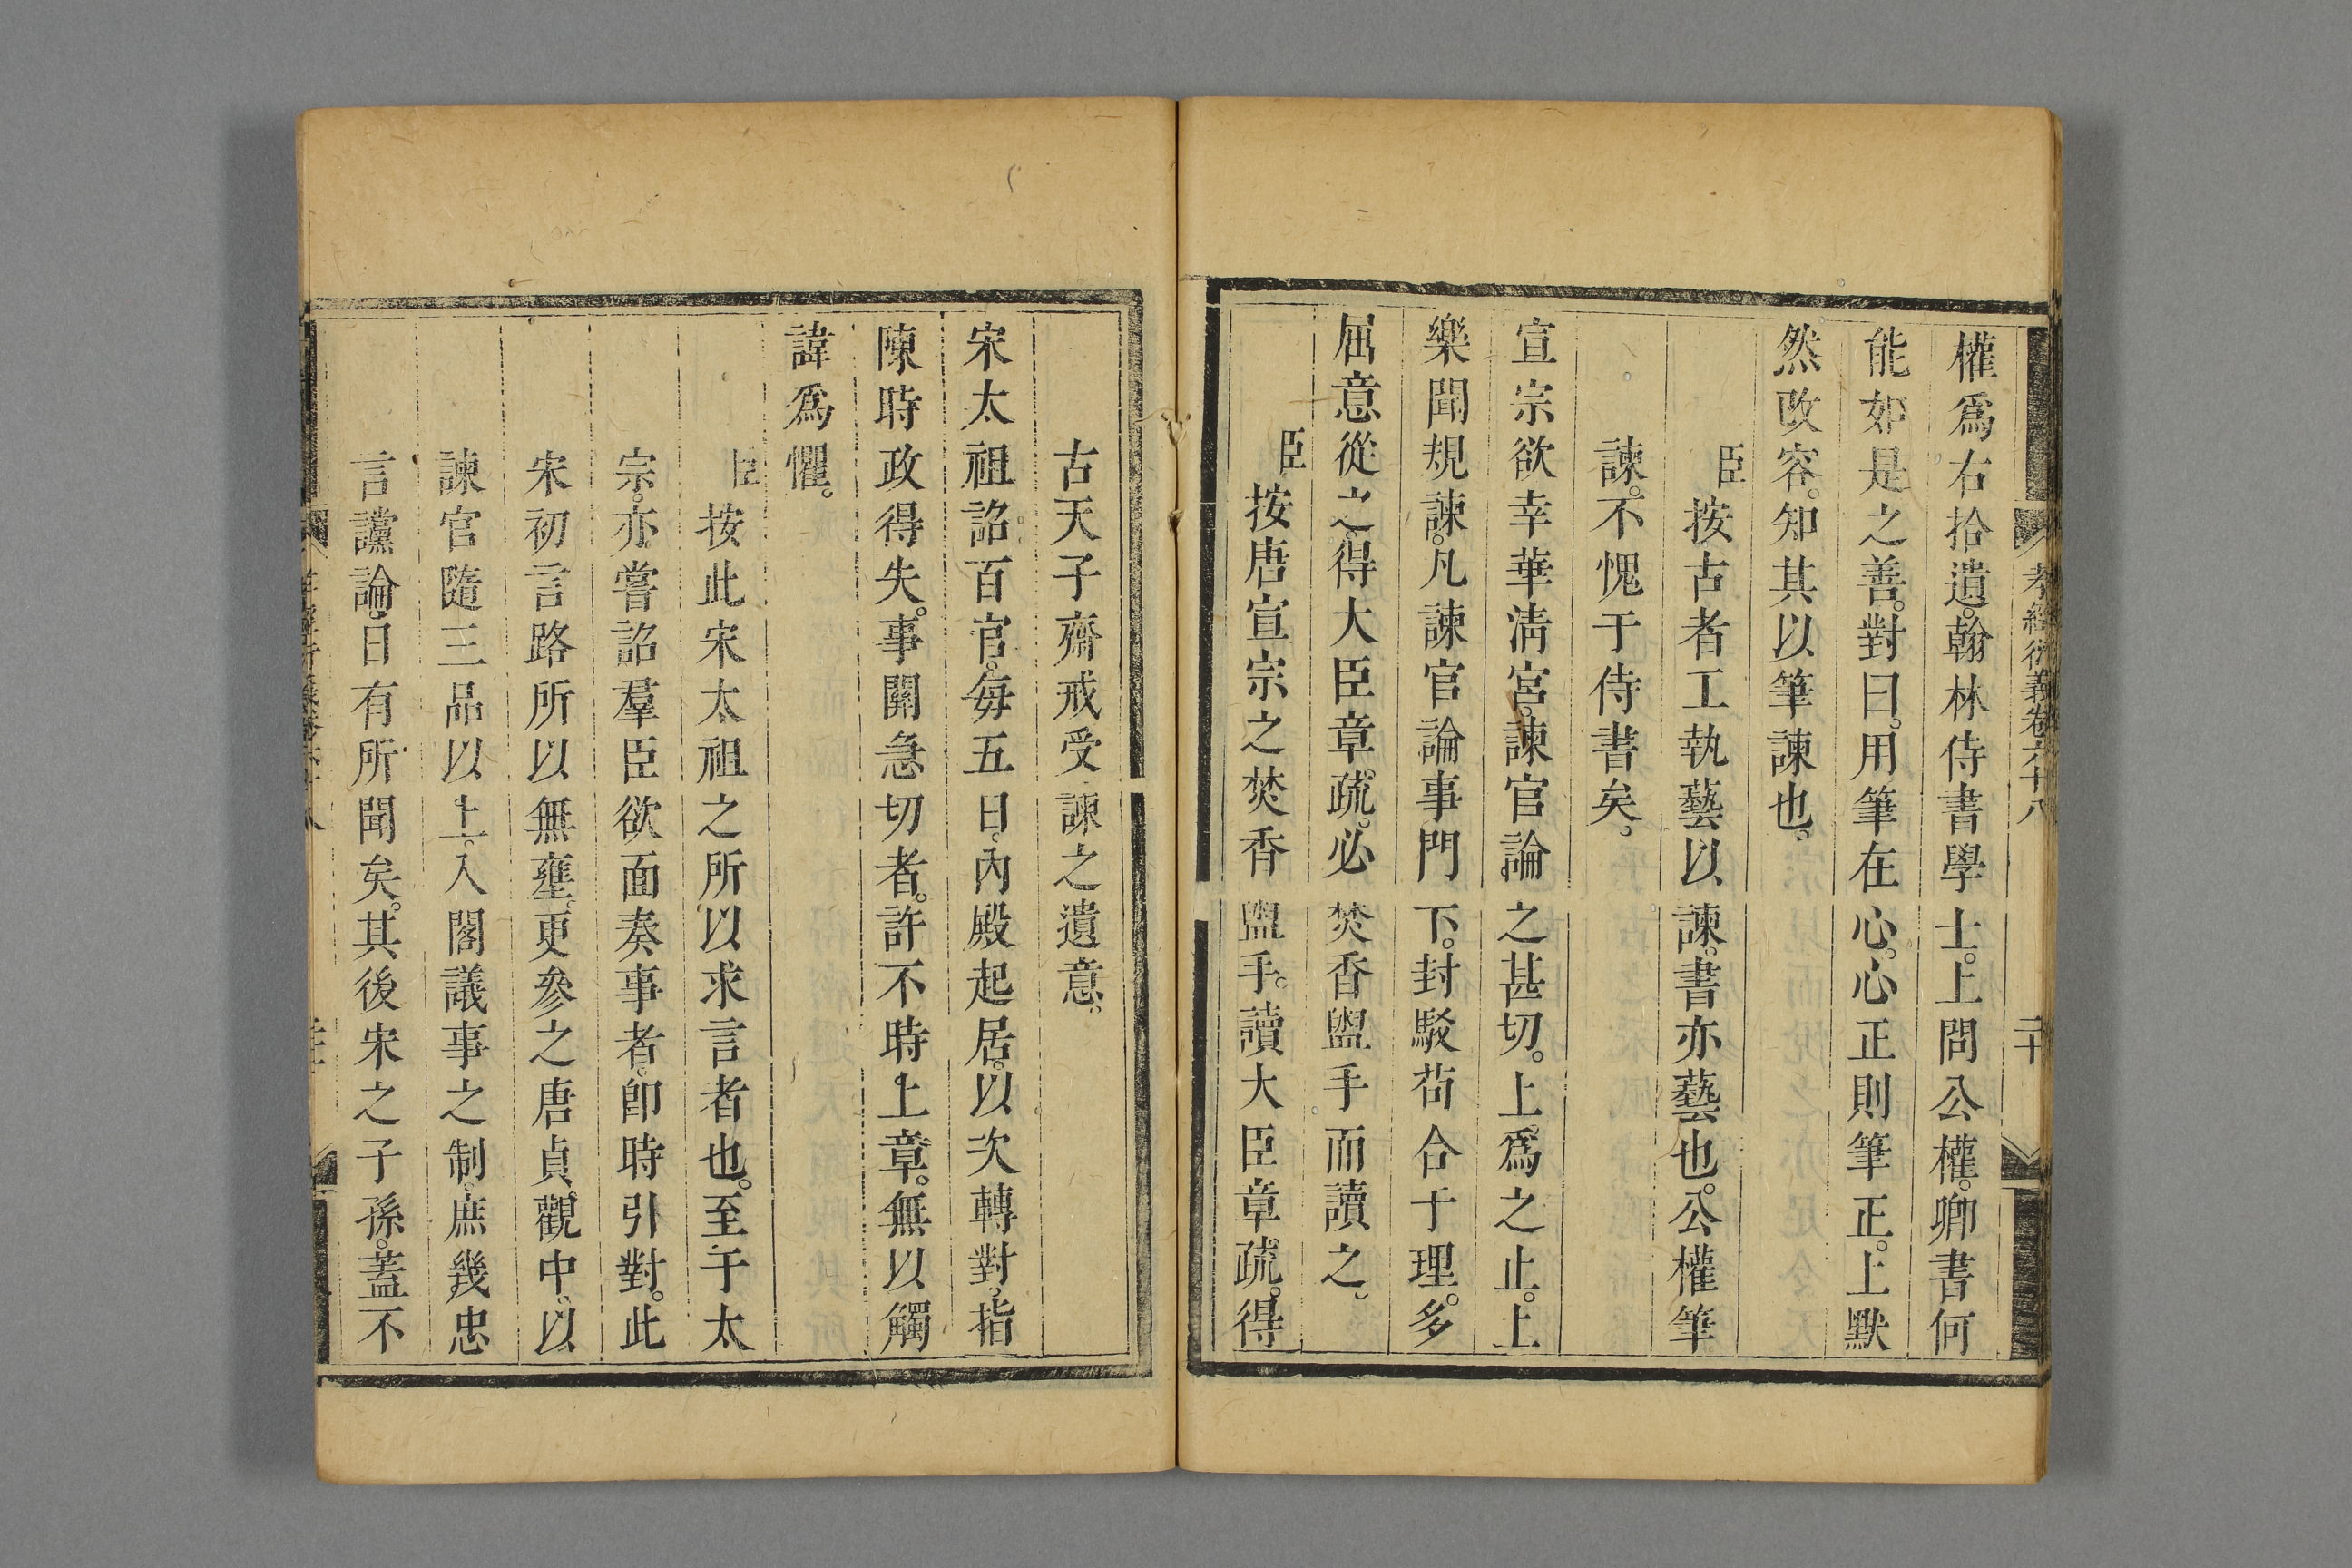 孝經衍義卷六十八
二十
權爲右拾遺。翰林侍書學士。上問公權。卿書何
能如是之善。對曰。用筆在心。心正則筆正。上默
然改容。知其以筆諫也。
臣按古者工執藝以諫。書亦藝也。公權筆
諫。不愧于侍書矣。
宣宗欲幸華淸宮。諫官論之甚切。上爲之止。上
樂聞規諫。凡諫官論事門下。封駁茍合于理。多
屈意從之。得大臣章疏。必焚香盥手而讀之。
臣按唐宣宗之焚香盥手。讀大臣章疏。得
古天子齋戒受諫之遺意。
宋太祖詔百官。每五日。內殿起居。以次轉對。指
陳時政得失。事關急切者。許不時上章。無以觸
諱爲懼。
臣按此宋太祖之所以求言者也。至于太
宗。亦嘗詔羣臣欲面奏事者。卽時引對。此
宋初言路所以無壅。更參之唐貞觀中。以
諫官隨三品以上。入閣議事之制。庶幾忠
言讜論。日有所聞矣。其後宋之子孫。蓋不